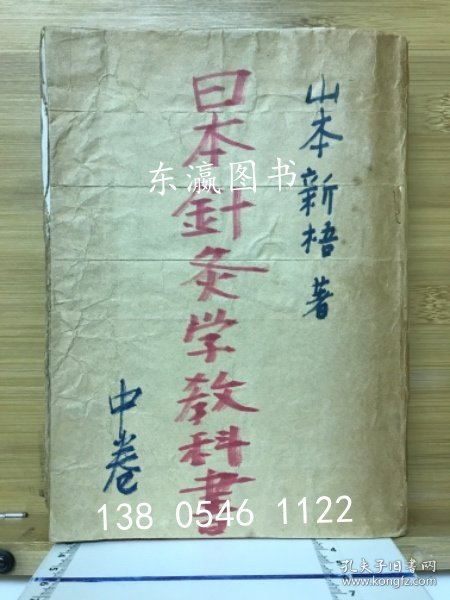 山本新梧 著
日本針灸学教科書
中巻
东瀛图书
138 0546 1122
孔夫子旧书网
www.kongfz.com